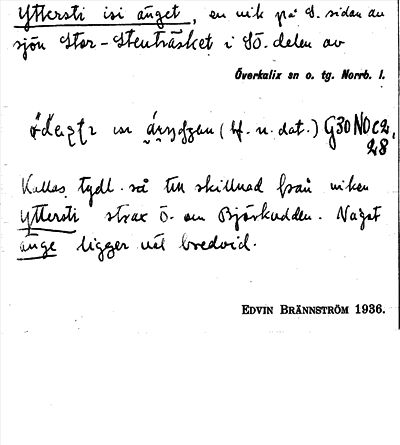 Yttersti isi änget, en vik på S. sidan av
sjön Stor-Stenträsket i SÖ. delen av
Överkalix sn o. tg. Norrb. l.
(bf. n. dat.) G30NOc2,
28
Kallas tydl. så till skillnad från viken
yttersti strax Ö. om Björkudden. Något
änge ligger väl bredvid.
EDVIN BRÄNNSTRÖM 1936.